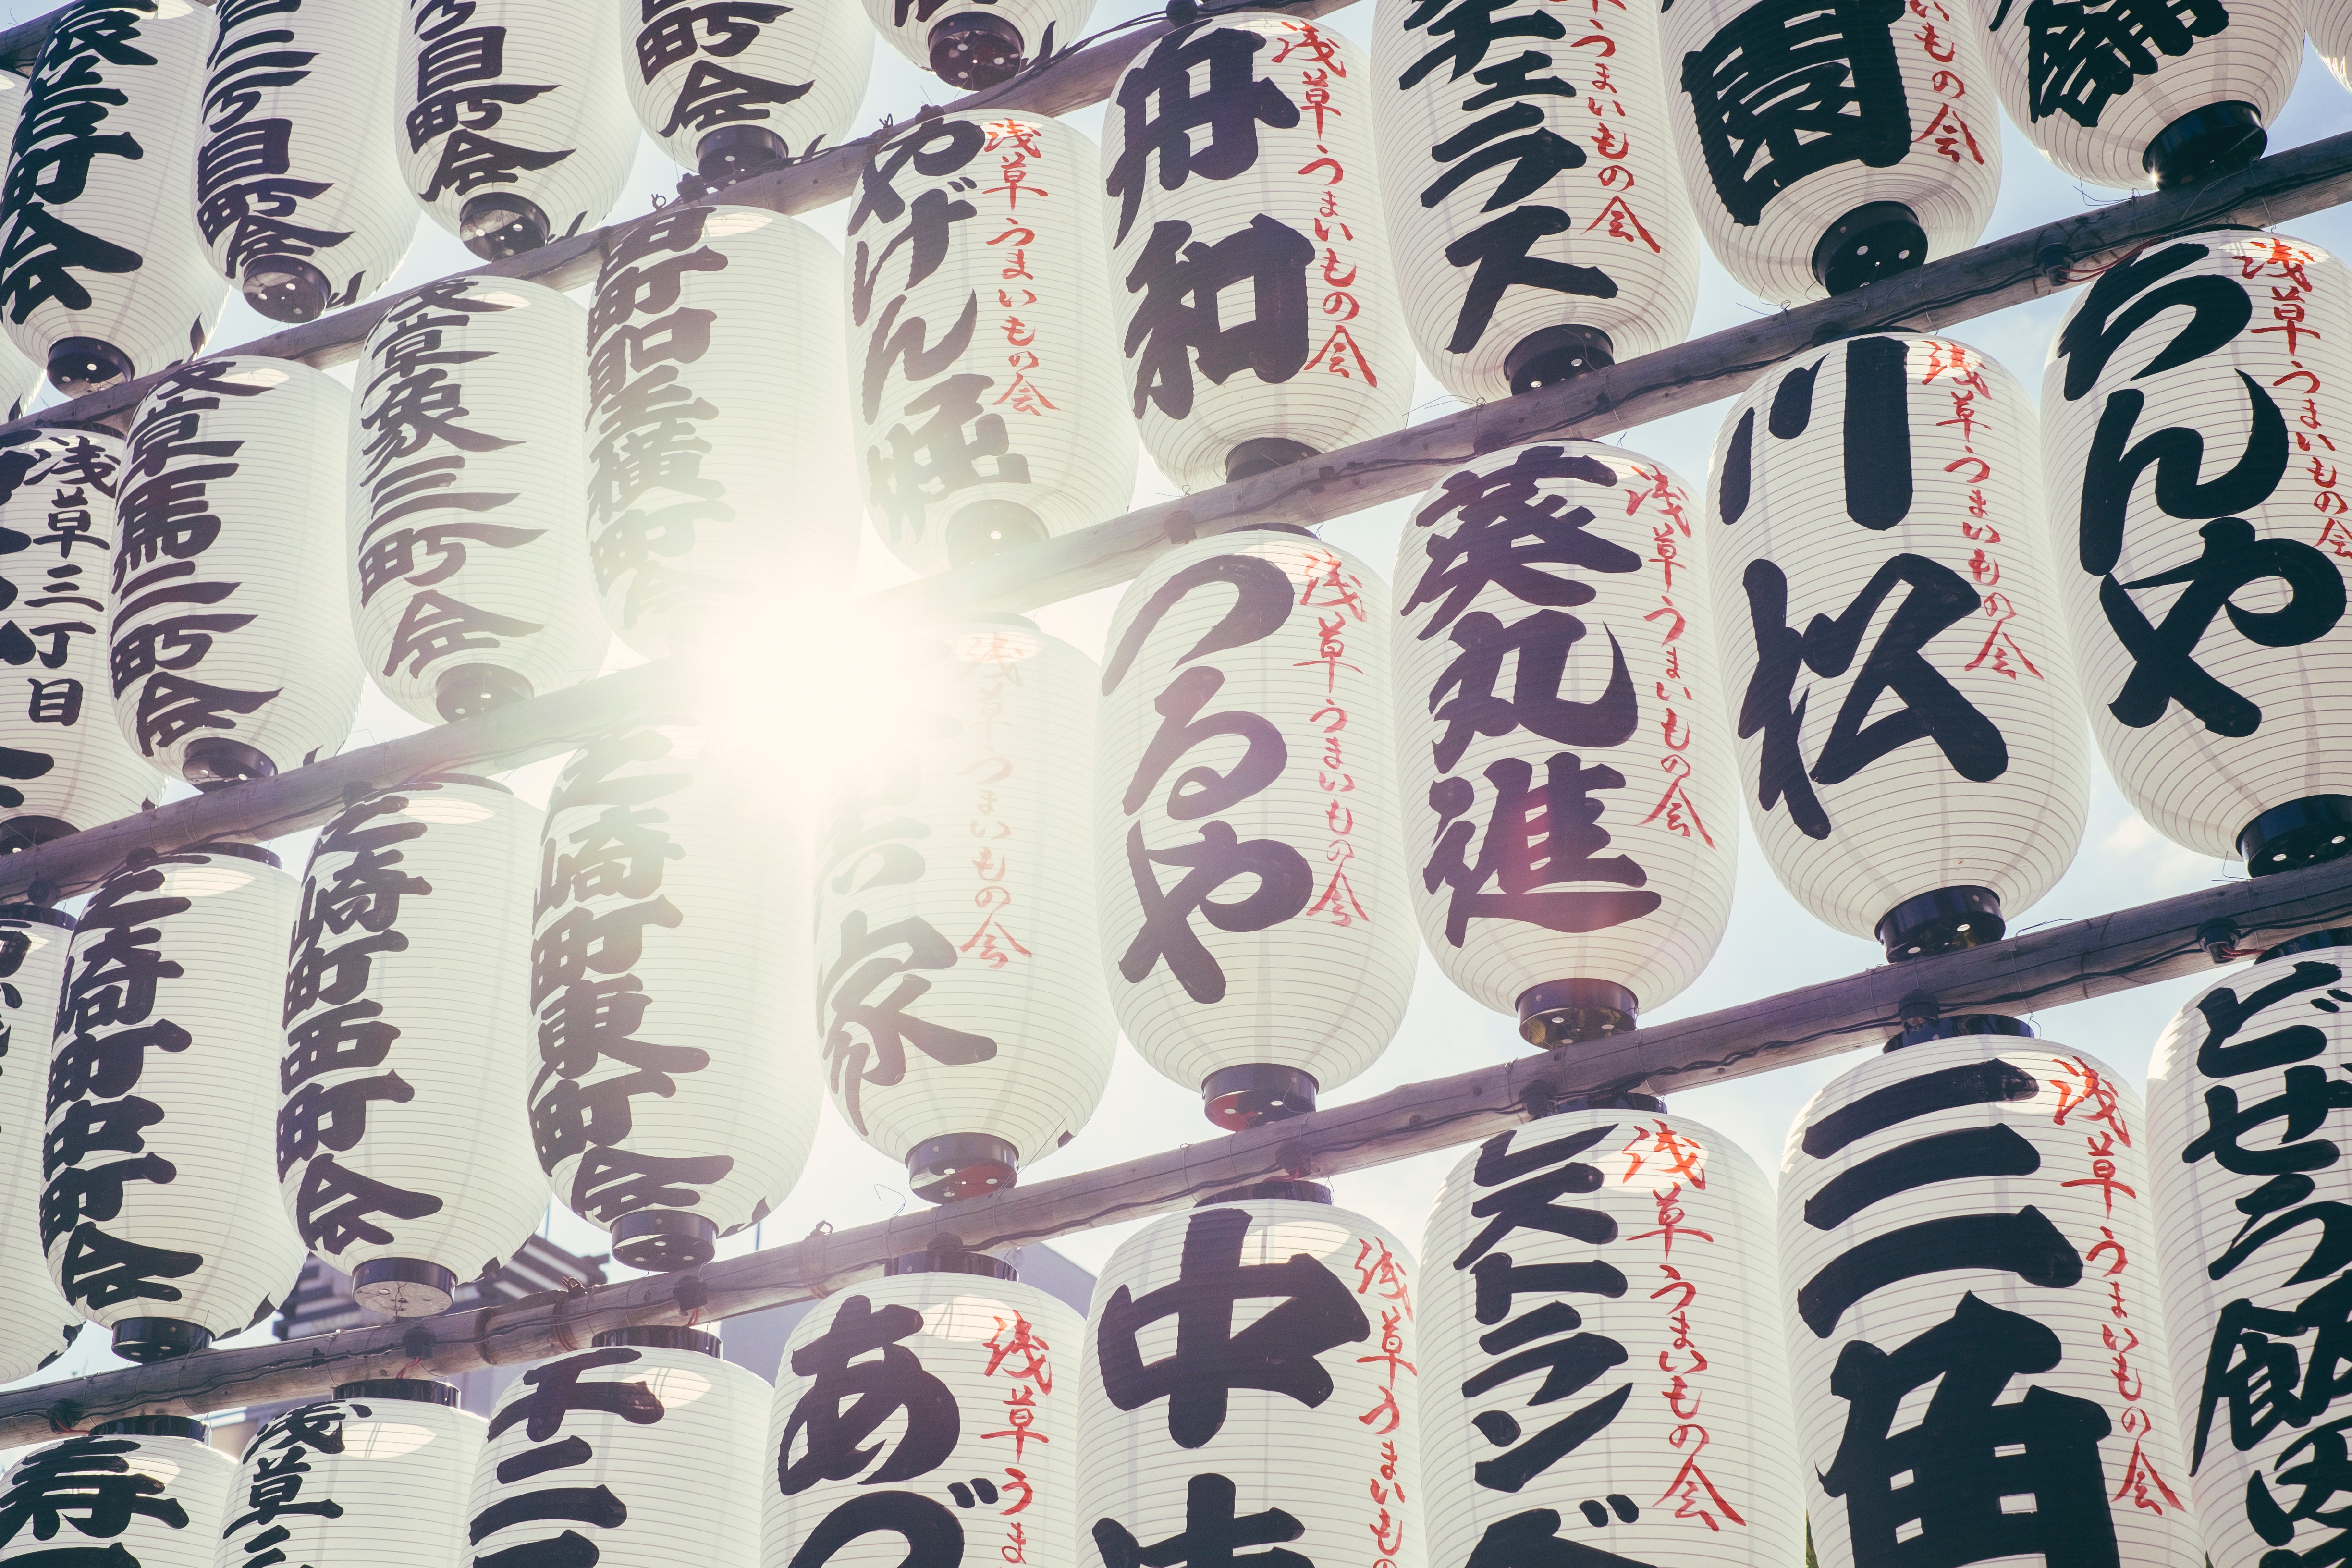 浅草うまいもの会
舟和
浅草うまいもの会
やげん堀
うまいもの会
ラス
いもの会
園
町会
二丁目町会
丁目町会
町会
浅草うまいもの会
ちんや
浅草うまいもの会
川松
浅草うまいもの会
葵丸進
浅草うまいもの会
つるや
浅草うまいもの会
家
浅草象三町会
浅草馬二町会
浅草三丁目
どぜう飯田
浅草うまいもの会
三角
浅草うまいもの会
レストラン
浅草うまいも
中
浅草うま
あづ
芝崎町東町会
芝崎町西町会
芝崎町中町会
千二
浅草
寿